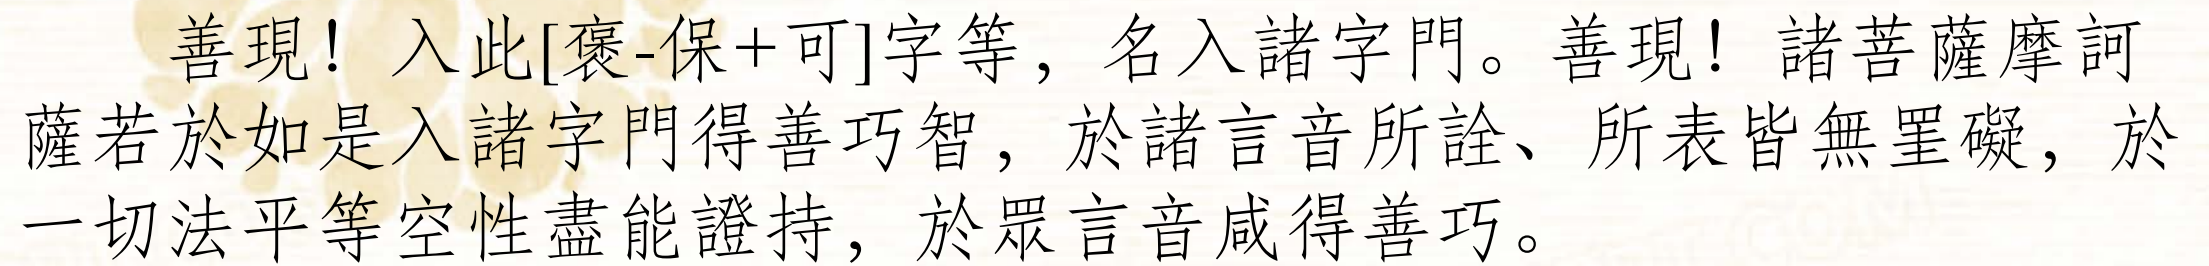 善現！入此[褒-保+可]字等，名入諸字門。善現！諸菩薩摩訶
薩若於如是入諸字門得善巧智，於諸言音所詮、所表皆無罣礙，於
一切法平等空性盡能證持，於眾言音咸得善巧。